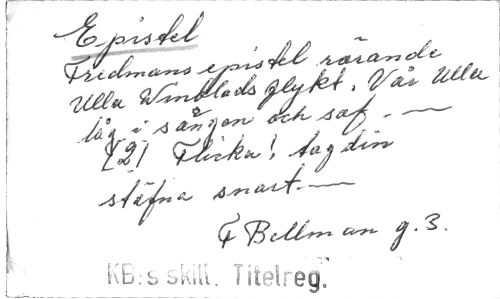 Epistel
Fredmans epistel rörande
Ulla Winblads flykt. Vår Ulla
låg i sängen och sof. —
(2) Flicka! tag din
stäfna snart. —
F Bellman g. 3.
KB:s skill. Titelreg.